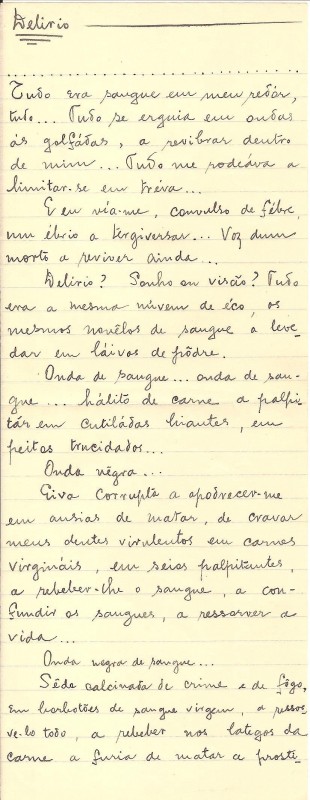 Delirio
Tudo era sangue em meu redór,
tudo... Tudo se erguia em ondas
ás golfádas, a revibrar dentro
de mim... Tudo me rodeáva a
limitar-se em tréva...
E eu via-me, convulso de fébre,
um ébrio a tergiversar... Voz dum
morto a reviver ainda...
Delirio? Sonho ou visão? Tudo
era a mesma núvem de éco, os
mesmos novêlos de sangue a leve-
dar em láivos de pôdre.
Onda de sangue... onda de san-
gue... hálito de carne a palpi-
tár em cutiládas hiantes, em
peitos trucidados...
Onda négra...
Eiva corrupta a apodrecer-me
em ansias de matar, de cravar
meus dentes virulentos em carnes
virgináis, em seios palpitantes,
a rebeber-lhe o sangue, a con-
fundir os sangues, a ressorver a
vida...
Onda negra de sangue...
Sêde calcinada de crime e de fôgo,
em borbotões de sangue virgem, a ressor-
ve-lo todo, a rebeber nos lategos da
carne a furia de matar a prosti-